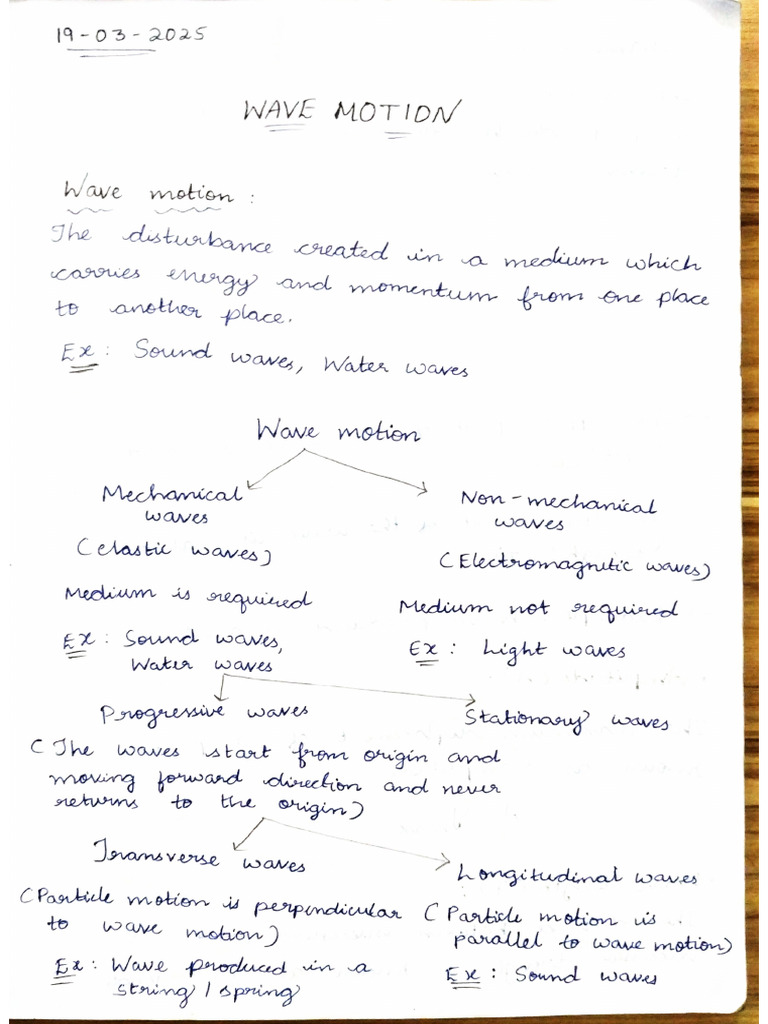 19-03-2025
WAVE MOTION
Wave motion :
The disturbance created in a medium which
carries energy and momentum from one place
to another place.
Ex : Sound waves, Water waves
Wave motion
Mechanical
waves
Non-mechanical
waves
(elastic waves)
(Electromagnetic waves)
Medium is required
Medium not required
Ex : Sound waves,
Water waves
Ex : Light waves
Progressive waves
Stationary waves
(The waves start from origin and
moving forward direction and never
returns to the origin)
Transverse waves
Longitudinal waves
(Particle motion is perpendicular
to wave motion)
(Particle motion is
parallel to wave motion)
Ex : Wave produced in a
string / spring
Ex : Sound waves